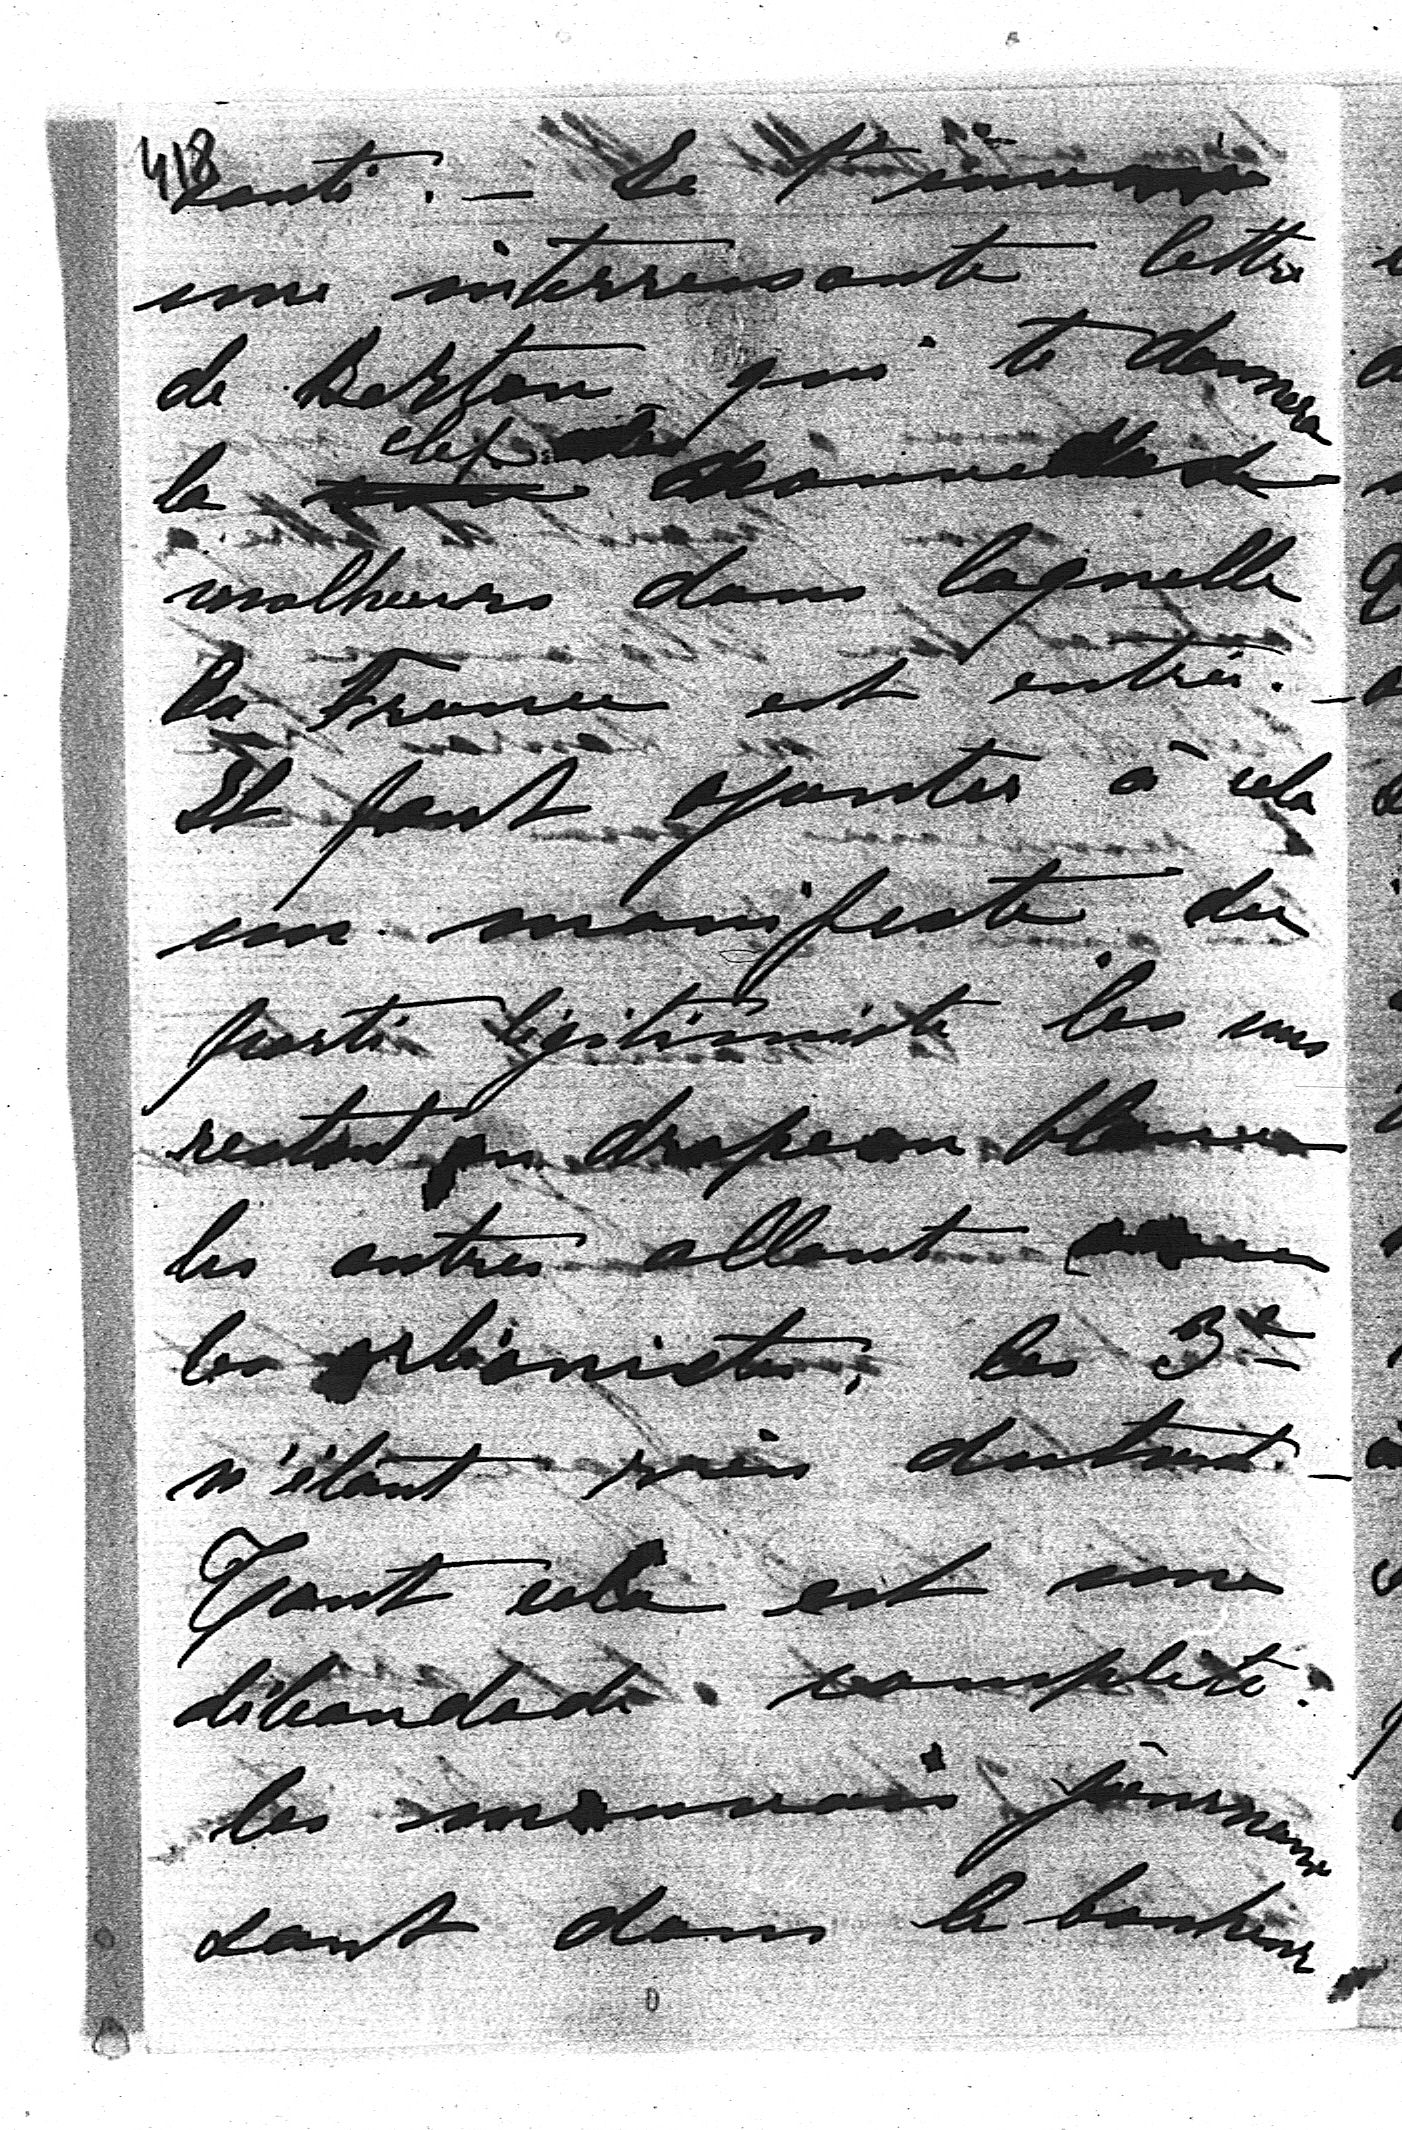 418
santé. _ Je t'envoie
une interressante lettre
de Berton qui te donnera
la clef des nouvelles de
malheurs dans laquelle
la France est entrée. _
Il faut ajouter à cela
un manifeste du
parti légitimiste les uns
restant au drapeau blanc
les autres allant
les orléanistes, les 3e
n'étant rien du tout. _
Tout cela est une
débandade complète.
les mauvais journaux
sont dans le bonheur